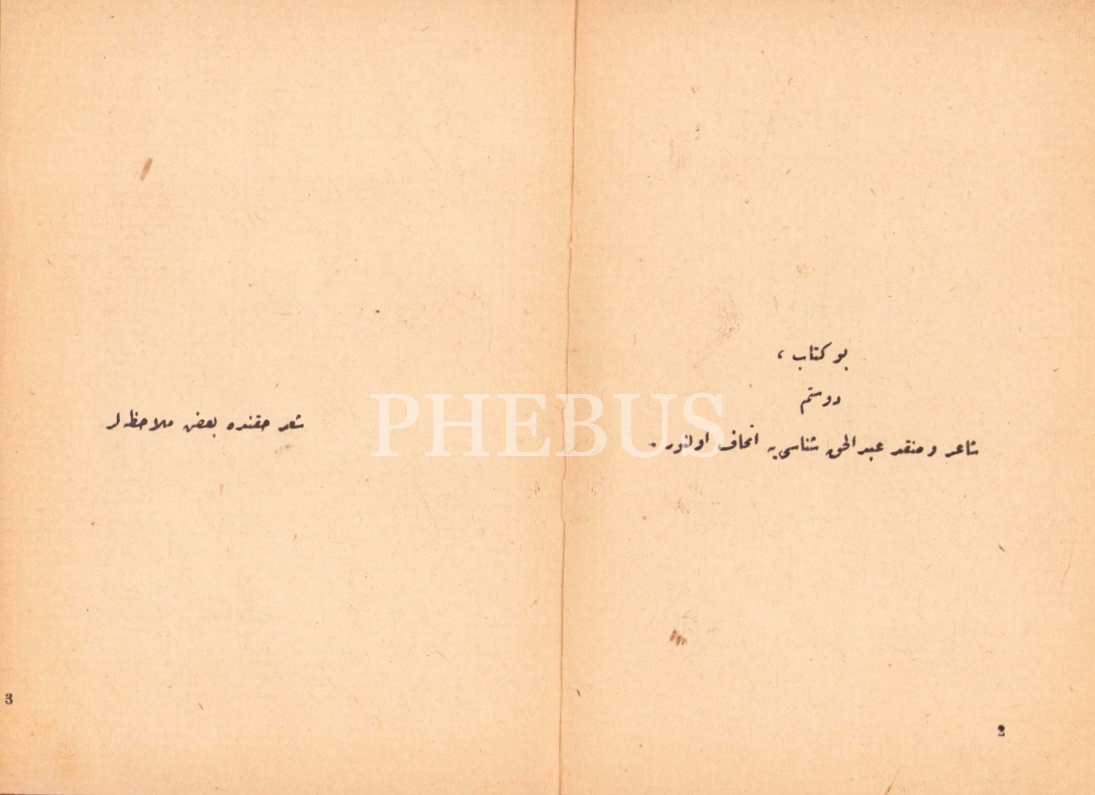 بو كتاب ،
دوستم
شاعر و منقد عبدالحق شناسی یه اتحاف اولنور .
2
شعر حقنده بعض ملاحظه لر
3
PHEBUS